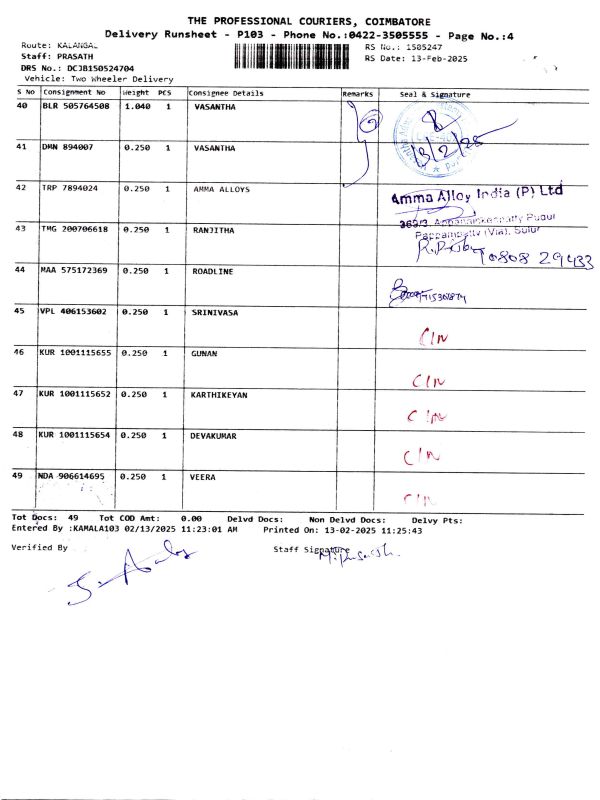 THE PROFESSIONAL COURIERS, COIMBATORE
Delivery Runsheet - P103 - Phone No.:0422-3505555 - Page No.:4
Route: KALANGAL RS No.: 1505247
Staff: PRASATH RS Date: 13-Feb-2025
DRS No.: DCJB150524704
Vehicle: Two Wheeler Delivery
S No Consignment No Weight PCS Consignee Details Remarks Seal & Signature
40 BLR 505764508 1.040 1 VASANTHA
13/2/25
41 DMN 894007 0.250 1 VASANTHA
42 TRP 7894024 0.250 1 AMMA ALLOYS
Amma Alloy India (P) Ltd
369/3, Pudur
Pappampatty (Via), Sulur
43 TMG 200706618 0.250 1 RANJITHA
70808 29433
44 MAA 575172369 0.250 1 ROADLINE
45 VPL 406153602 0.250 1 SRINIVASA C/N
46 KUR 1001115655 0.250 1 GUNAN C/N
47 KUR 1001115652 0.250 1 KARTHIKEYAN C/N
48 KUR 1001115654 0.250 1 DEVAKUMAR C/N
49 NDA 906614695 0.250 1 VEERA C/N
Tot Docs: 49 Tot COD Amt: 0.00 Delvd Docs: Non Delvd Docs: Delvy Pts:
Entered By :KAMALA103 02/13/2025 11:23:01 AM Printed On: 13-02-2025 11:25:43
Verified By Staff Signature